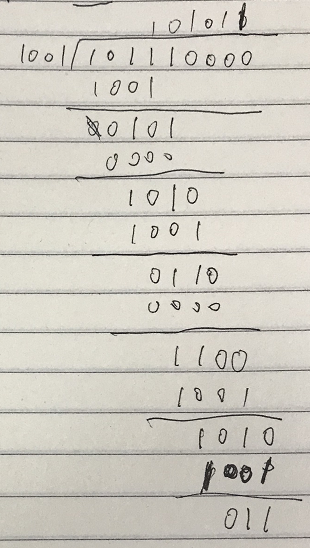 101011
1001/101110000
1001
0101
0000
1010
1001
0110
0000
1100
1001
1010
1001
011